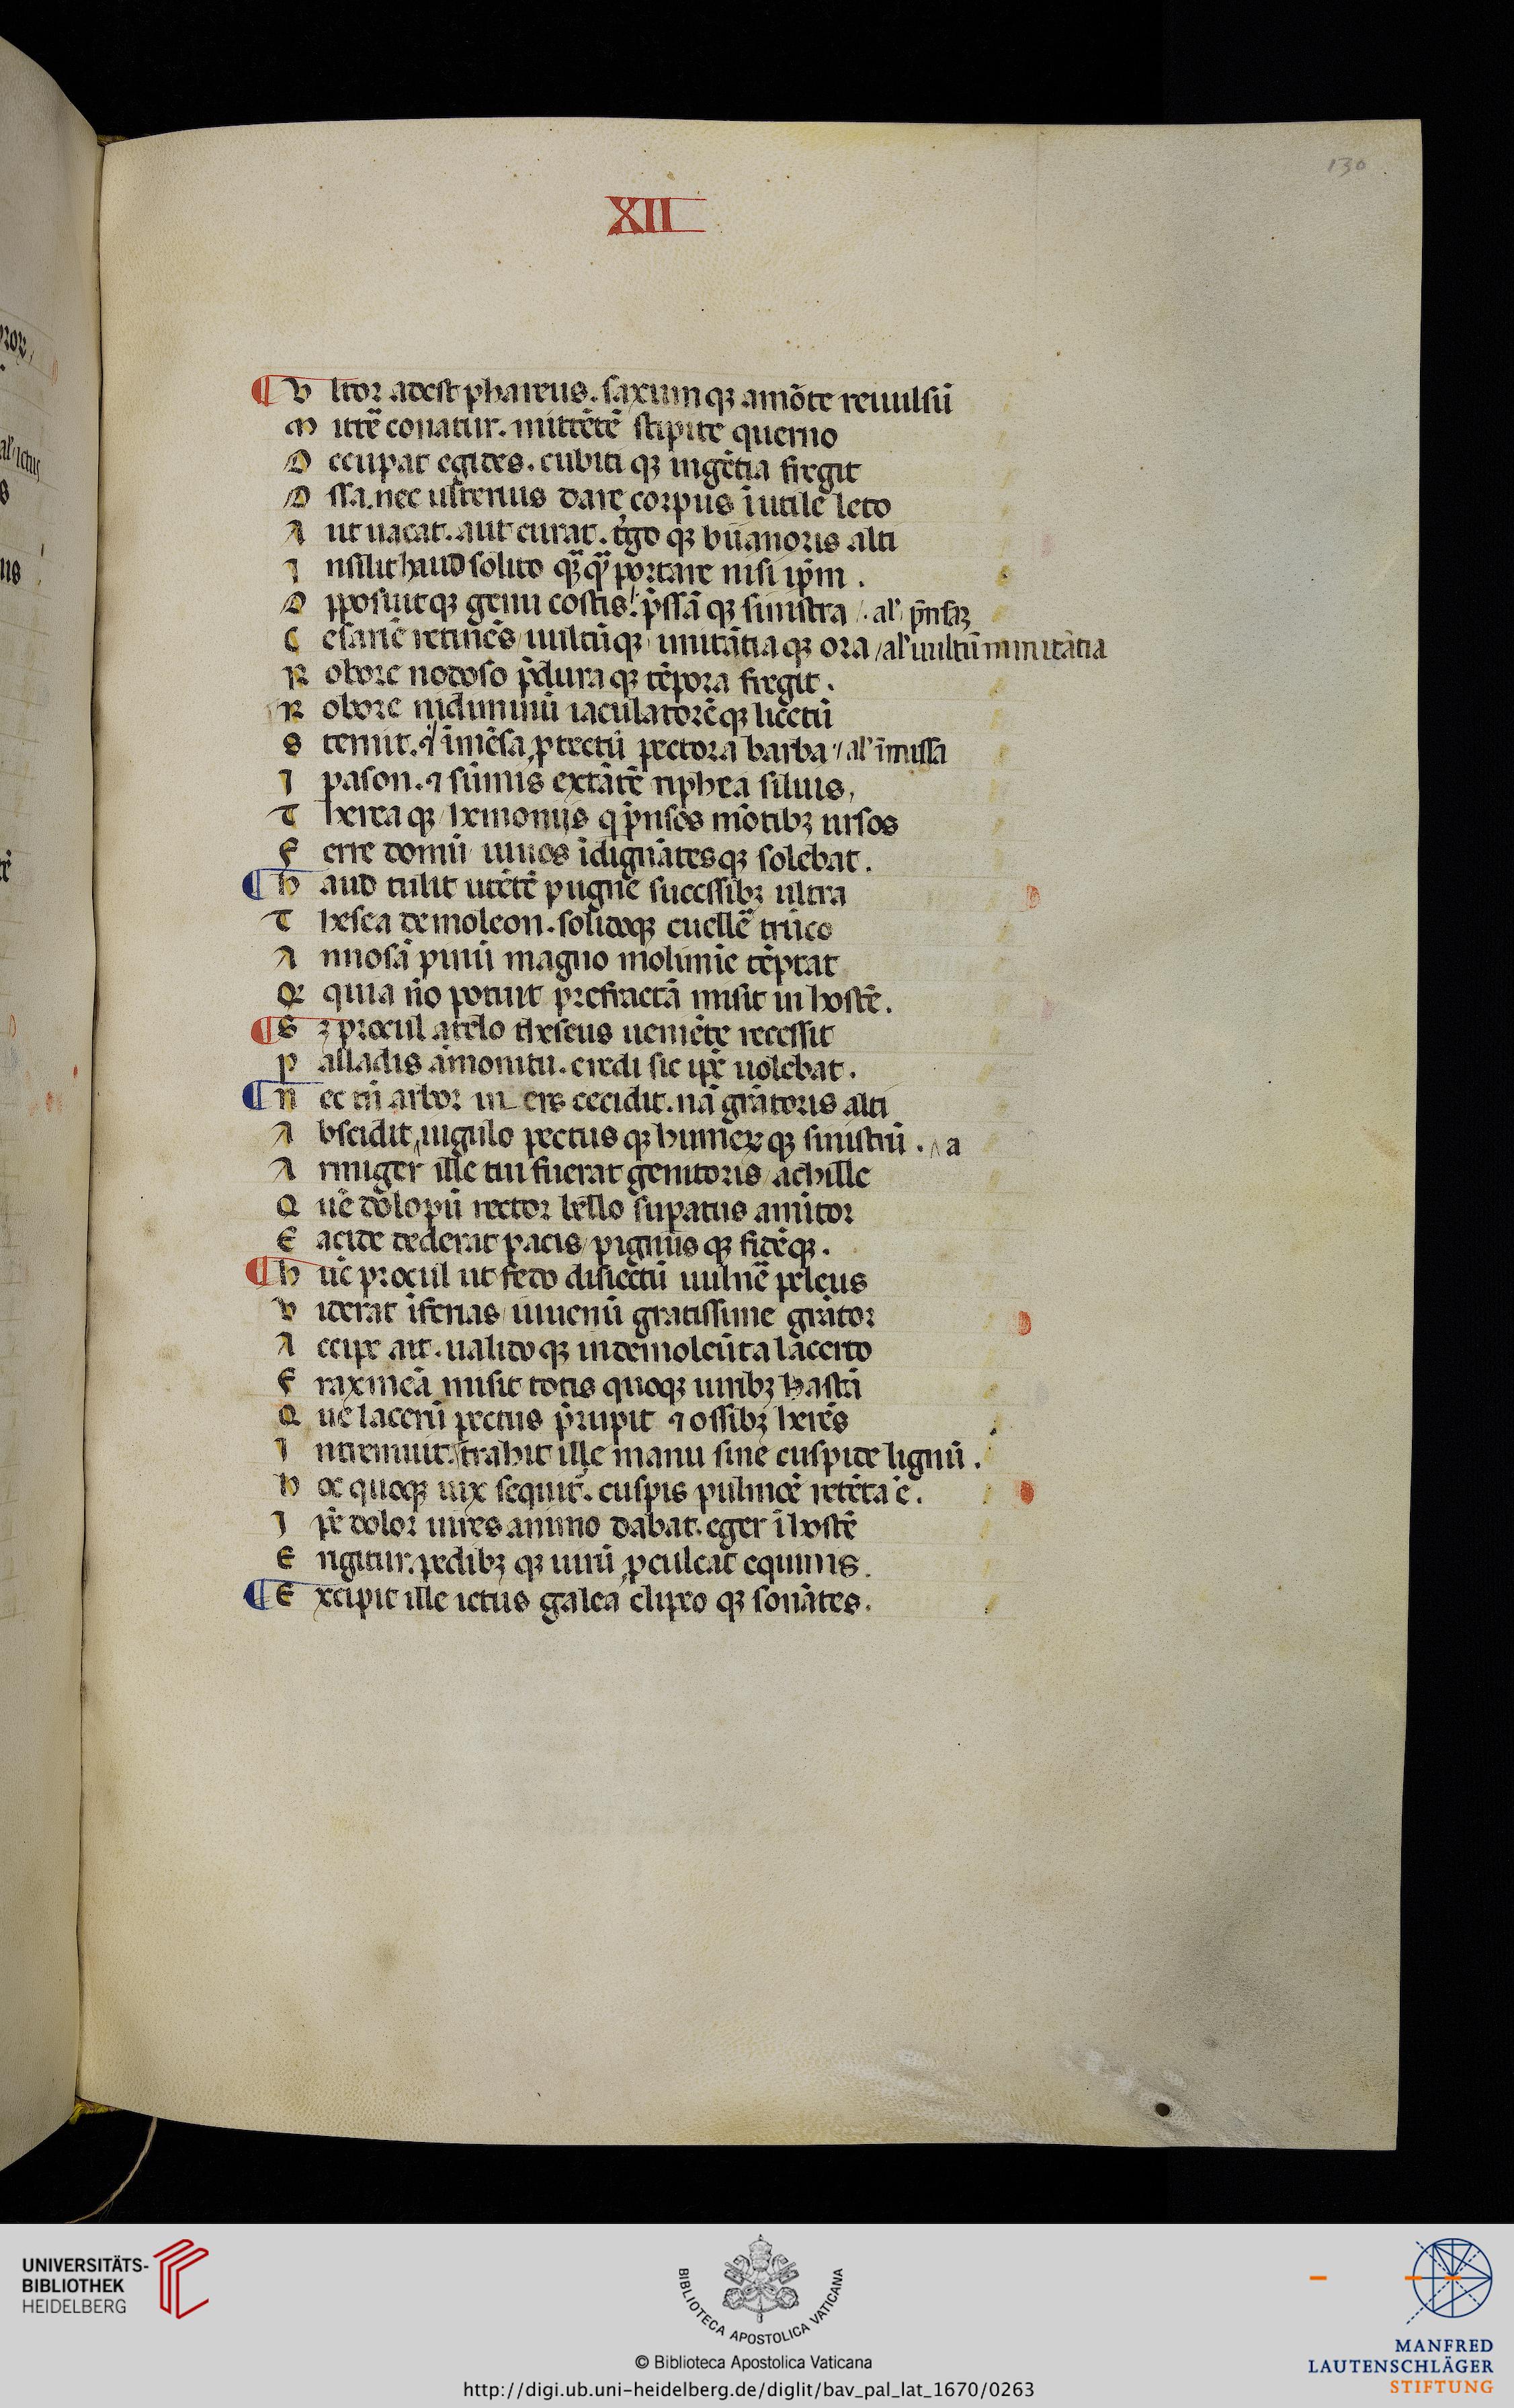 130
XII
¶ V ltor adest phareus. saxumqꝫ amōte reuulsū
M ittē conatur. mittētē stipite querno
O ccupat egides. cubiti qꝫ ingētia fregit
O ssa. nec ulterius dare corpus īutile leto
A ut uacat. aut curat. t̓go qꝫ bianoris alti
I nsilit haud solito qꝫ qͣ portare nisi ip̄m.
O pposuitqꝫ genu costis. p̄ssā qꝫ sinistra /. al' p̄nsāqꝫ
C esariē retinēs uultūqꝫ imitātia qꝫ ora / al' uultū minitātia
R obore nodoso p̄dura qꝫ tēpora fregit.
R obore nidimmū iaculatorēqꝫ licetū
S ternit. ⁊ īmēsa ꝓtectū pectora barba // al' īmissa
I pason. ⁊ sūmis extātē riphea siluis,
T herea qꝫ hemoniis q p̄nsos mōtibꝫ ursos
F erre domū uiuos īdignātesqꝫ solebat.
¶ H aud tulit utētē pugne successibꝫ ultra
T hesea demoleon. solidoqꝫ euellē trūco
A nnosā pinū magno molimīe tēptat
Q quia nō potuit prefractā misit in hostē.
¶ S ꝫ procul a telo theseus ueniēte recessit
P alladis āmonitu. credi sic ipē uolebat.
¶ N ec tn̄ arbor in ers cecidit. nā grātoris alti
A bscidit iugulo pectus qꝫ humerꝫ qꝫ sinistrū. ‸ a
A rmiger ille tui fuerat genitoris achille
Q uē dolopū rector bello supatus amītor
E acide dederat pacis pignus qꝫ fidēqꝫ.
¶ H ūc procul ut fedo disiectū uulnē peleus
V iderat īferias iuuenū gratissime grātor
A ccipe ait. ualido qꝫ in demoleūta lacerto
F raxineā misit totis quoqꝫ uiribꝫ hastā
Q ue laterū pectus p̄rupit ⁊ ossibꝫ herēs
I ntremuit. trahit ille manu sine cuspide lignū.
H oc quoqꝫ uix sequit̄. cuspis pulmōe retēta ē.
I pē dolor uires animo dabat. eger ī hostē
E rigitur. pedibꝫ qꝫ uirū ꝓculcat equinis.
¶ E xcipit ille ictus galea clipeo qꝫ sonātes.
UNIVERSITÄTS-
BIBLIOTHEK
HEIDELBERG
BIBLIOTECA APOSTOLICA VATICANA
© Biblioteca Apostolica Vaticana
http://digi.ub.uni-heidelberg.de/diglit/bav_pal_lat_1670/0263
MANFRED
LAUTENSCHLÄGER
STIFTUNG